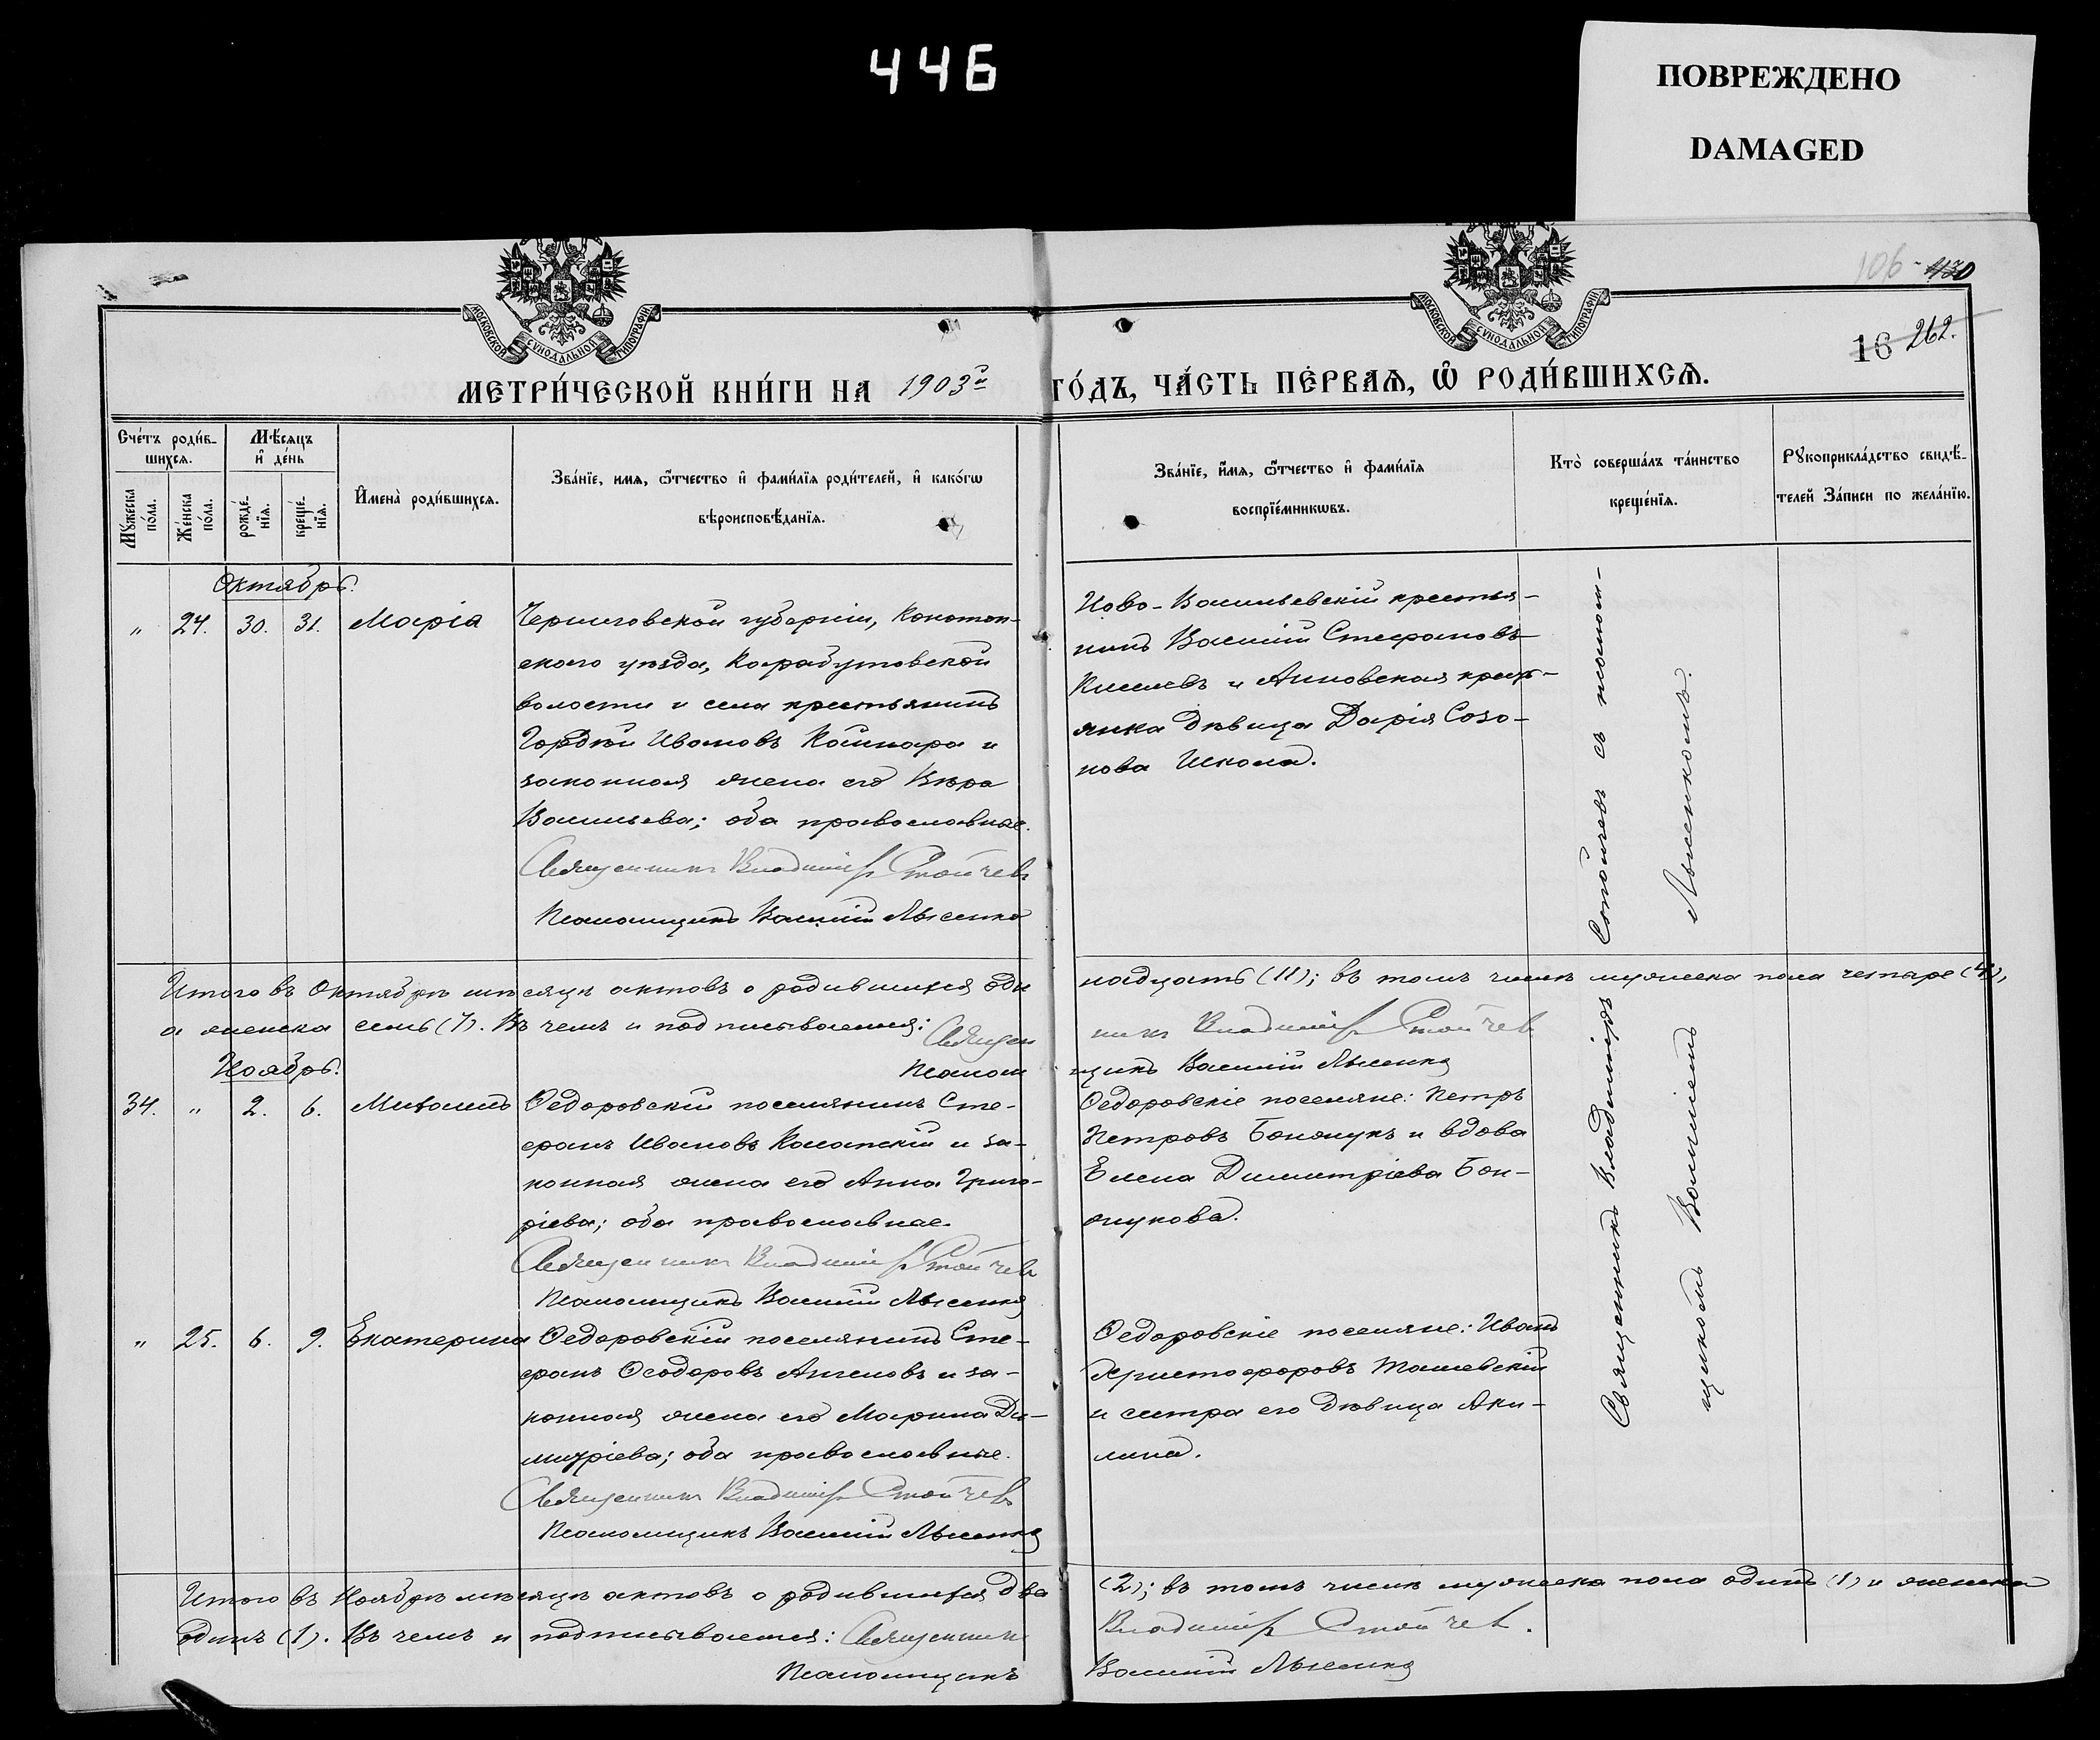 446
ПОВРЕЖДЕНО
DAMAGED
106
430
16 262.
МОСКОВСКОЙ СѴНОДАЛЬНОЙ ТИПОГРАФІИ
МОСКОВСКОЙ СѴНОДАЛЬНОЙ ТИПОГРАФІИ
МЕТРИ́ЧЕСКОЙ КНИ́ГИ НА 1903й ГО́ДЪ, ЧА́СТЬ ПЕ́РВАѦ, Ѡ҆ РОДИ́ВШИХСѦ.
Сче́тъ роди́в-
шихсѧ.
Мꙋ́жеска по́ла.
Же́нска по́ла.
Мѣ́сѧцъ и҆ де́нь
рожде́-
нїѧ.
креще́-
нїѧ.
И҆мена̀ роди́вшихсѧ.
Зва́нїе, имѧ, ѻ҆́тчество и҆ фами́лїѧ роди́телей, и҆ како́гѡ
вѣроисповѣ́данїѧ.
Зва́нїе, и҆́мѧ, ѻ҆́тчество и҆ фами́лїѧ
воспрїе́мникѡвъ.
Кто̀ соверша́лъ та́инство
креще́нїѧ.
Рꙋкоприкла́дство свидѣ́-
телей За́писи по жела́нїю.
Октябрь.
„ 24. 30. 31. Марія
Черниговской губерніи, Конотоп-
скаго уѣзда, Карабутовской
волости и села крестьянинъ
Гордѣй Ивановъ Кошкара и
законная жена его Вѣра
Васильева; оба православные.
Священникъ Владиміръ Стойчевъ
Псаломщикъ Василій Лысенко
Ново-Васильевскій крестья-
нинъ Василій Стефановъ
Киселевъ и Анновская кресть-
янка дѣвица Дарія Созо-
нова Школа.
Итого въ Октябрѣ мѣсяцѣ актовъ о родившихся оди
надцать (11); въ томъ числѣ мужеска пола четыре (4),
а женска семь (7). Въ чемъ и подписываемся: Священ
никъ Владиміръ Стойчев
Псалом
щикъ Василій Лысенко
Ноябрь.
34. „ 2. 6. Михаилъ
Ѳедоровскій поселянинъ Сте-
фанъ Ивановъ Касапскій и за-
конная жена его Анна Григо-
рьева; оба православные.
Священникъ Владиміръ Стойчевъ
Псаломщикъ Василій Лысенко
Ѳедоровскіе поселяне: Петръ
Петровъ Бонжукъ и вдова
Елена Димитріева Бон-
жукова.
„ 25. 6. 9. Екатерина
Ѳедоровскій поселянинъ Сте-
фанъ Ѳеодоровъ Ангеловъ и за-
конная жена его Марина Ди-
митріева; оба православные.
Священникъ Владиміръ Стойчевъ
Псаломщикъ Василій Лысенко
Ѳедоровскіе поселяне: Иванъ
Христофоровъ Ташевскій
и сестра его дѣвица Аки-
лина.
Священникъ Владиміръ Стойчевъ съ псалом-
щикомъ Василіемъ Лысенкомъ.
Итого въ Ноябрѣ мѣсяцѣ актовъ о родившихся два
(2); въ томъ числѣ мужеска пола одинъ (1) и женска
одинъ (1). Въ чемъ и подписываемся: Священникъ
Владиміръ Стойчев.
Псаломщикъ
Василій Лысенко